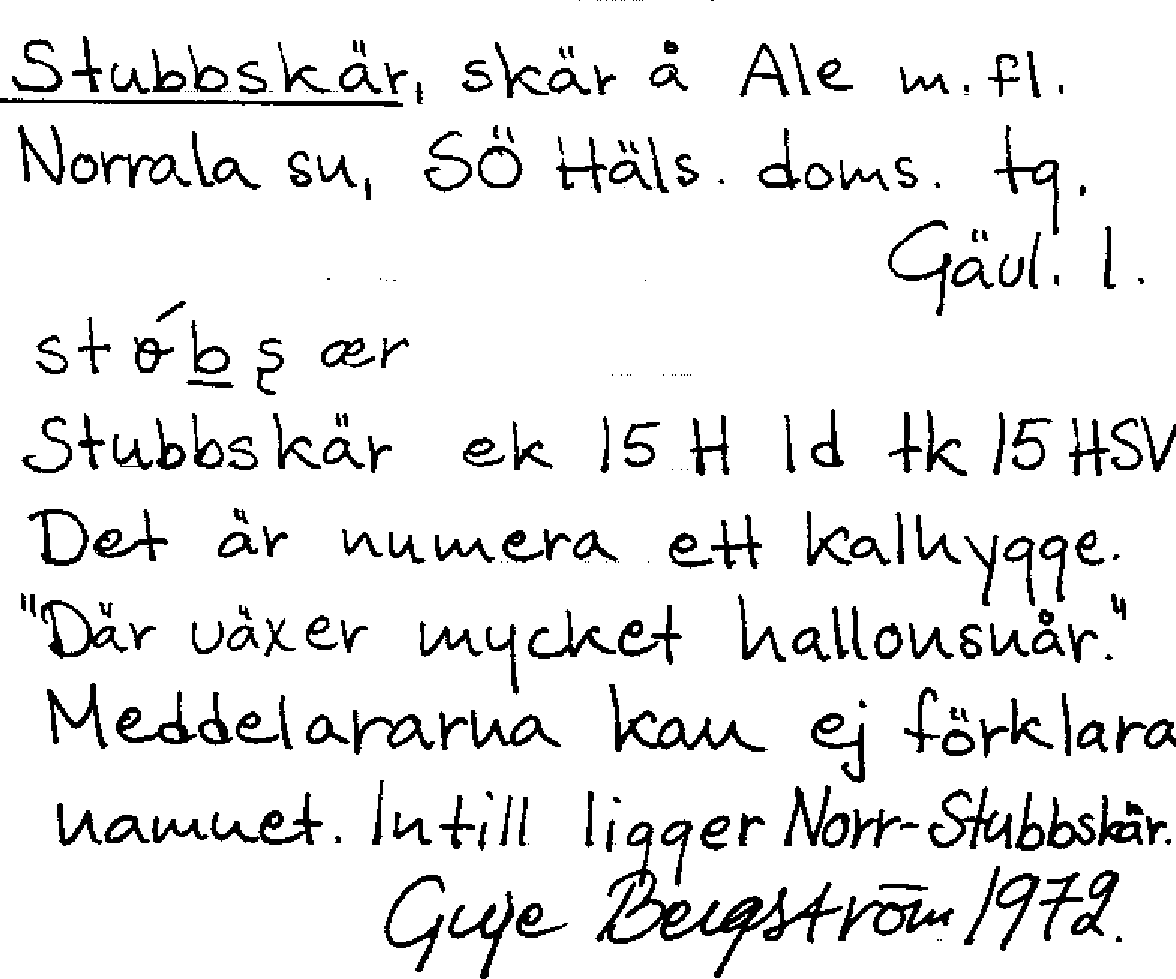 Stubbskär, skär å Ale m. fl.
Norrala sn, SÖ Häls. doms. tg.
Gävl. l.
stɵ́b̲ʂær
Stubbskär ek 15 H ld tk 15 HSV
Det är numera ett kalhygge.
"Där växer mycket hallonsnår."
Meddelararna kan ej förklara
namnet. Intill ligger Norr-Stubbskär.
Bergström 1972.